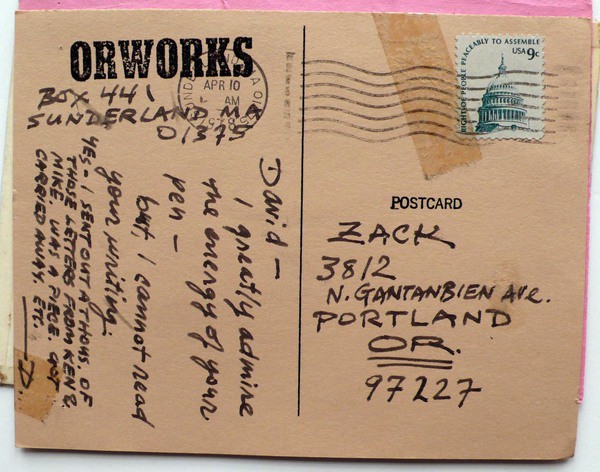 ORWORKS
BOX 441
SUNDERLAND MA
01375
APR 10
AM
RIGHT OF PEOPLE PEACEABLY TO ASSEMBLE
USA 9c
David —
I greatly admire
the energy of your
pen —
but, I cannot read
your writing.
YES - I SENT OUT A THOUS. OF
THOSE LETTERS FROM KEN &
MIKE. WAS A PIECE. GOT
CARRIED AWAY. ETC.
D.
POSTCARD
ZACK
3812
N. GANTANBIEN AVE.
PORTLAND
OR.
97227